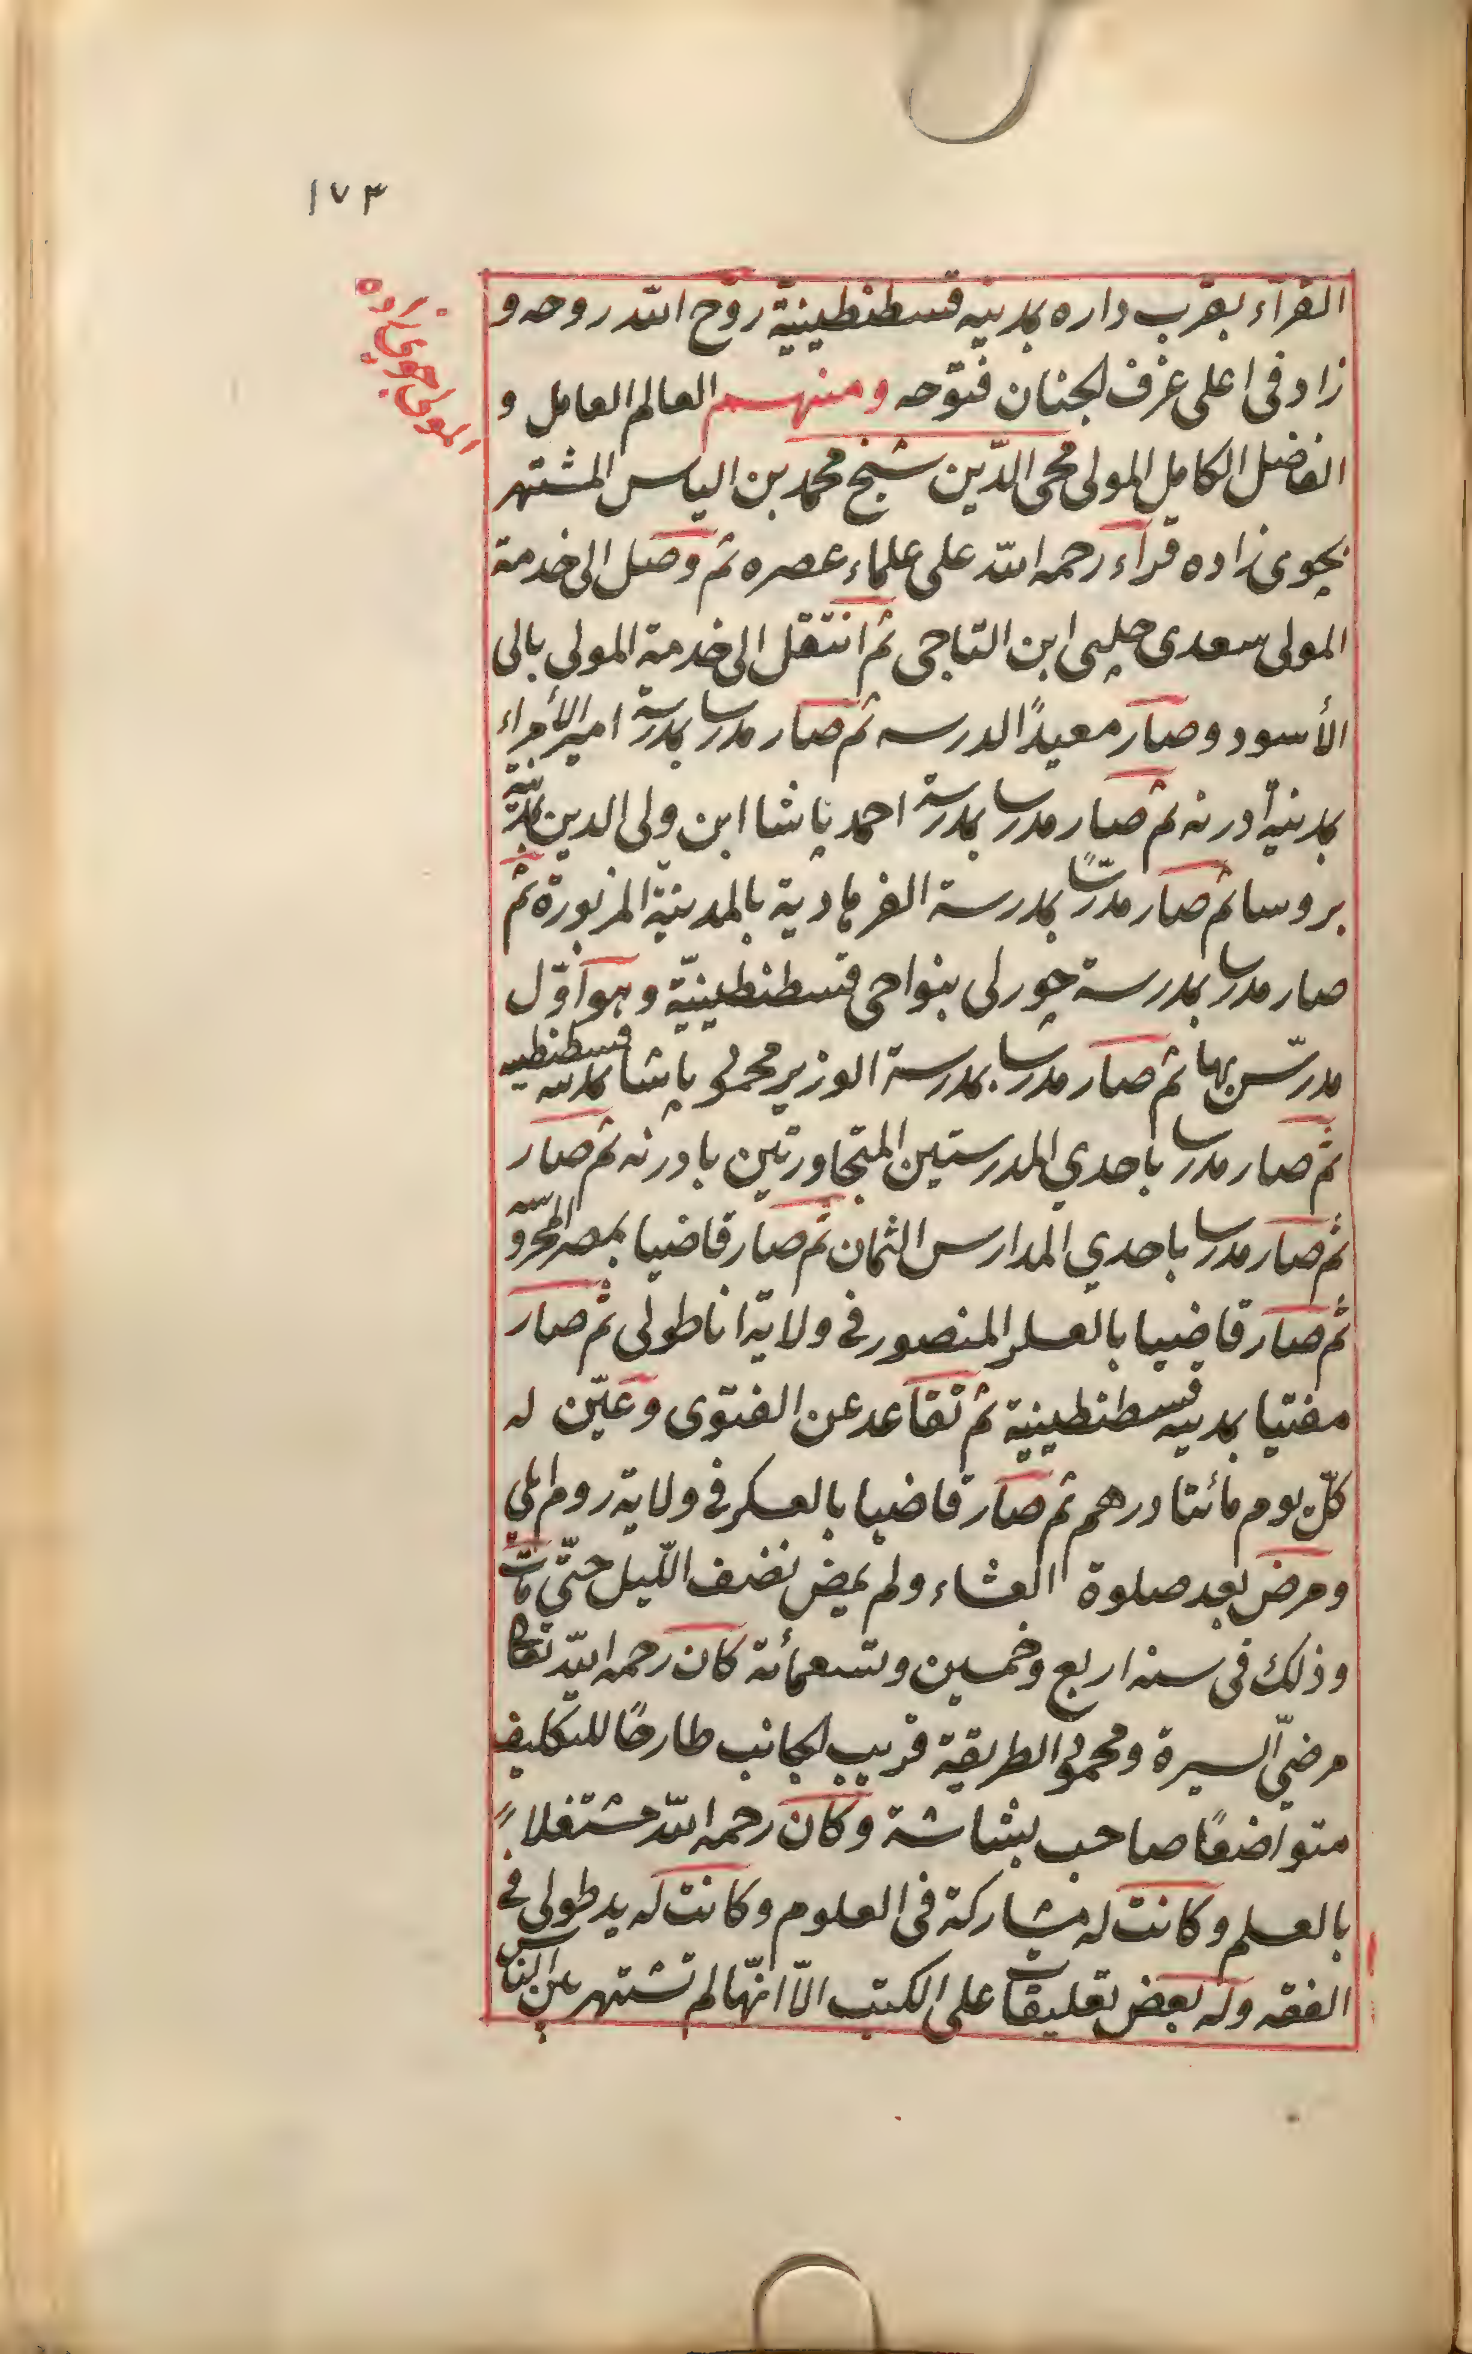 ١٧٣
المولى جوي زاده
القرآء بقرب داره بمدينه قسطنطينيّة روّح الله روحه و
زاد فى اعلى غرف الجنان فتوحه ومنهم العالم العامل و
الفاضل الكامل المولى محى الدّين شيخ محمد بن الياس المشتهر
بچوى زاده قرآء رحمه الله على علماء عصره ثم وصل الى خدمة
المولى سعدى چلبى ابن التاجى ثم انتقل الى خدمة المولى بالى
الأسود وصار معيدًا لدرسه ثم صار مدرسا بمدرسة امير الأمراء
بمدينة أدرنه ثم صار مدرسا بمدرسة احمد پاشا ابن ولى الدين بمدينة
بروسا ثم صار مدرّسًا بمدرسة الفرهادية بالمدينة المزبورة ثم
صار مدرسا بمدرسة چورلى بنواحى قسطنطينيّة وهو اوّل
مدرّس بها ثم صار مدرسا بمدرسة الوزير محمود پاشا بمدينه قسطنطينيه
ثم صار مدرسا باحدي المدرستين المتجاورتين بادرنه ثم صار
ثم صار مدرسا باحدي المدارس الثمان ثم صار قاضيا بمصر المحروسه
ثم صار قاضيا بالعسكر المنصور فى ولاية اناطولى ثم صار
مفتيا بمدينه قسطنطينية ثم تقاعد عن الفتوى وعيّن له
كلّ يوم مائتا درهم ثم صار قاضيا بالعسكر فى ولاية روم ايلي
ومرض بعد صلوة العشاء ولم يمض نصف اللّيل حتّى مات
وذلك فى سنه اربع وخمسين وتسعمأئة كان رحمه الله تعالى
مرضىّ السيرة ومحمود الطريقة قريب الجانب طارحًا للتكليف
متواضعًا صاحب بشاشة وكان رحمه الله مشتغلاً
بالعلم وكانت له مشاركة فى العلوم وكانت له يد طولى فى
الفقه وله بعض تعليقات على الكتب الّا انّها لم تشتهر بين الناس